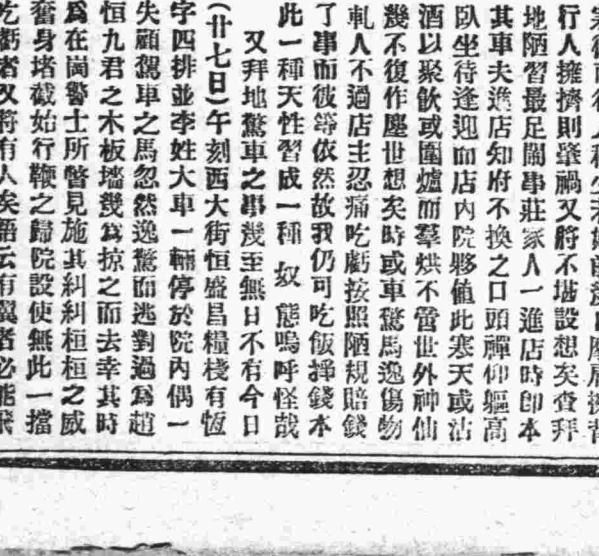 行人擁擠則肇禍又將不堪設想矣查拜
地陋習最足鬧事莊家人一進店時卽本
其車夫進店知府不換之口頭禪仰軀高
臥坐待逢迎而店內院夥值此寒天或沽
酒以聚飲或圍爐而羣烘不管世外神仙
幾不復作塵世想矣時或車驚馬逸傷物
軋人不過店主忍痛吃虧按照陋規賠錢
了事而彼等依然故我仍可吃飯掙錢本
此一種天性習成一種奴態嗚呼怪哉
又拜地驚車之事幾至無日不有今日
(廿七日)午刻西大街恒盛昌糧棧有恆
字四排並李姓大車一輛停於院內偶一
失顧駕車之馬忽然逸驚而逃對過爲趙
恒九君之木板墻幾爲掠之而去幸其時
爲在崗警士所瞥見施其糾糾桓桓之威
奮身堵截始行鞭之歸院設使無此一擋
吃虧者又將有人矣語云有翼者必能飛